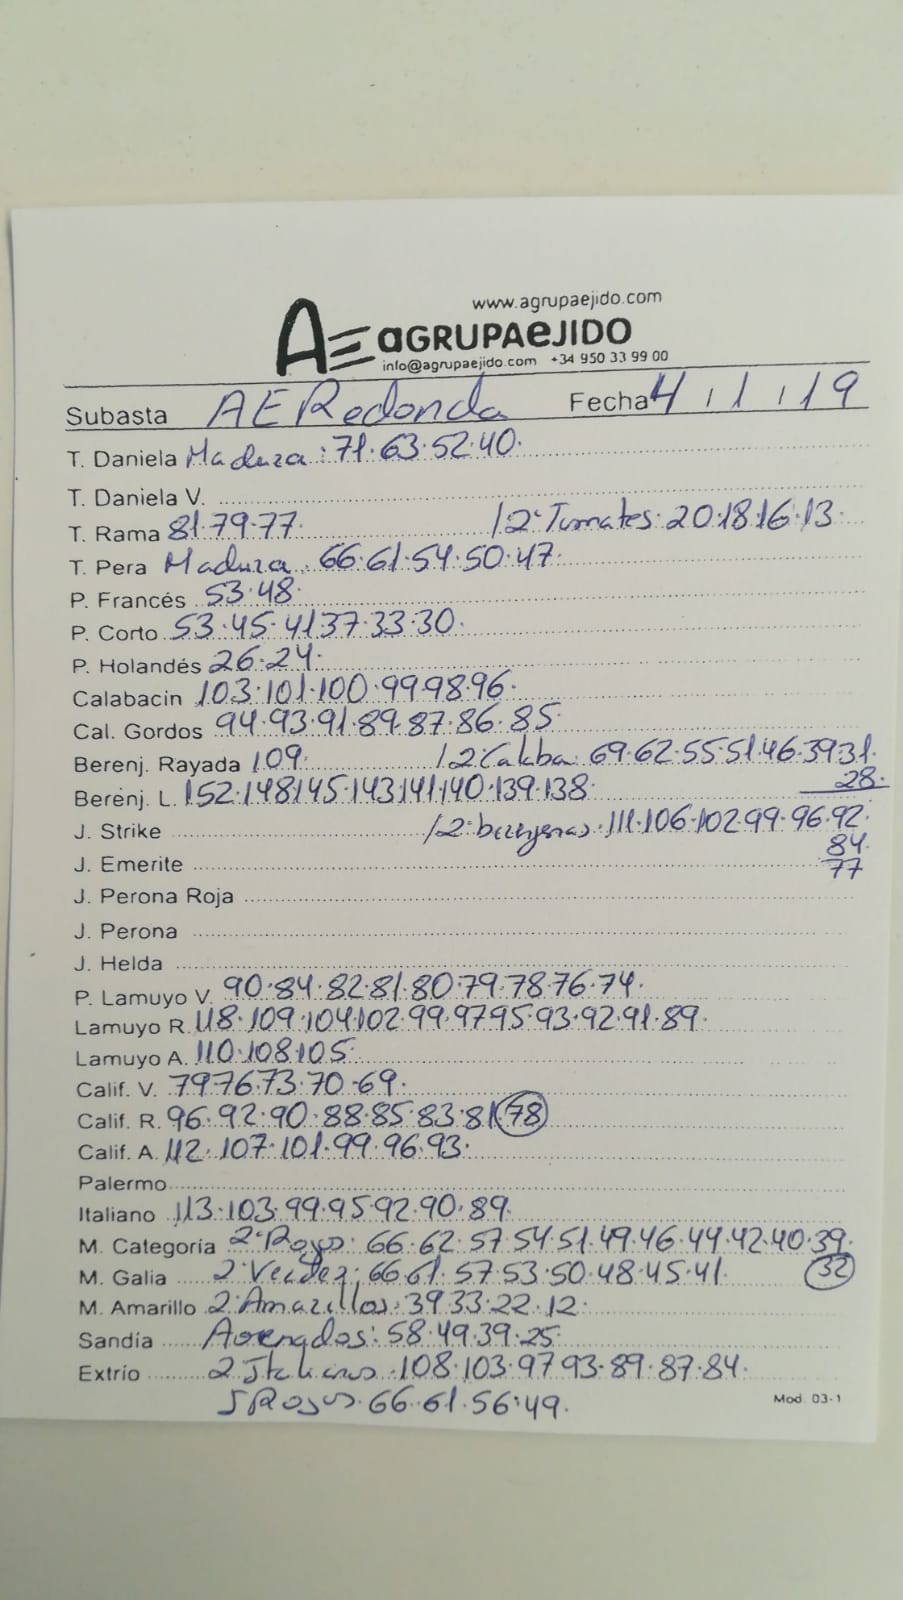 www.agrupaejido.com
AE aGRUPAeJIDO
info@agrupaejido.com +34 950 33 99 00
Subasta AERedonda Fecha 4/1/19
T. Daniela Madura: 71·63·52·40·
T. Daniela V.
T. Rama 81·79·77· /2ªTomates·20·18·16·13·
T. Pera Madura: 66·61·54·50·47·
P. Francés 53·48·
P. Corto 53·45·41·37·33·30·
P. Holandés 26·24·
Calabacin 103·101·100·99·98·96·
Cal. Gordos 94·93·91·89·87·86·85·
Berenj. Rayada 109· /2ªCalaba·69·62·55·51·46·39·31·
28·
Berenj. L. 152·148·145·143·141·140·139·138·
J. Strike /2ªberengenas·111·106·102·99·96·92·
84·
J. Emerite 77
J. Perona Roja
J. Perona
J. Helda
P. Lamuyo V. 90·84·82·81·80·79·78·76·74·
Lamuyo R. 118·109·104·102·99·97·95·93·92·91·89·
Lamuyo A. 110·108·105·
Calif. V. 79·76·73·70·69·
Calif. R. 96·92·90·88·85·83·81·78
Calif. A. 112·107·101·99·96·93·
Palermo
Italiano 113·103·99·95·92·90·89·
M. Categoría 2ªRojos: 66·62·57·54·51·49·46·44·42·40·39·
M. Galia 2ªVerdes: 66·61·57·53·50·48·45·41· 32
M. Amarillo 2ªAmarillos·39·33·22·12·
Sandía Asrengados: 58·49·39·25·
Extrío 2ªItalianos·108·103·97·93·89·87·84·
JRojos·66·61·56·49·
Mod. 03-1